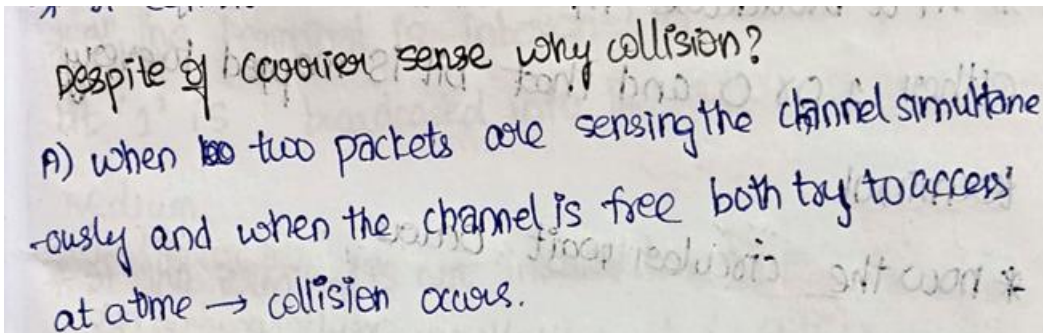 Despite of carrier sense why collision?
A) when two packets are sensing the channel simultane
-ously and when the channel is free both try to access
at a time → collision occurs.